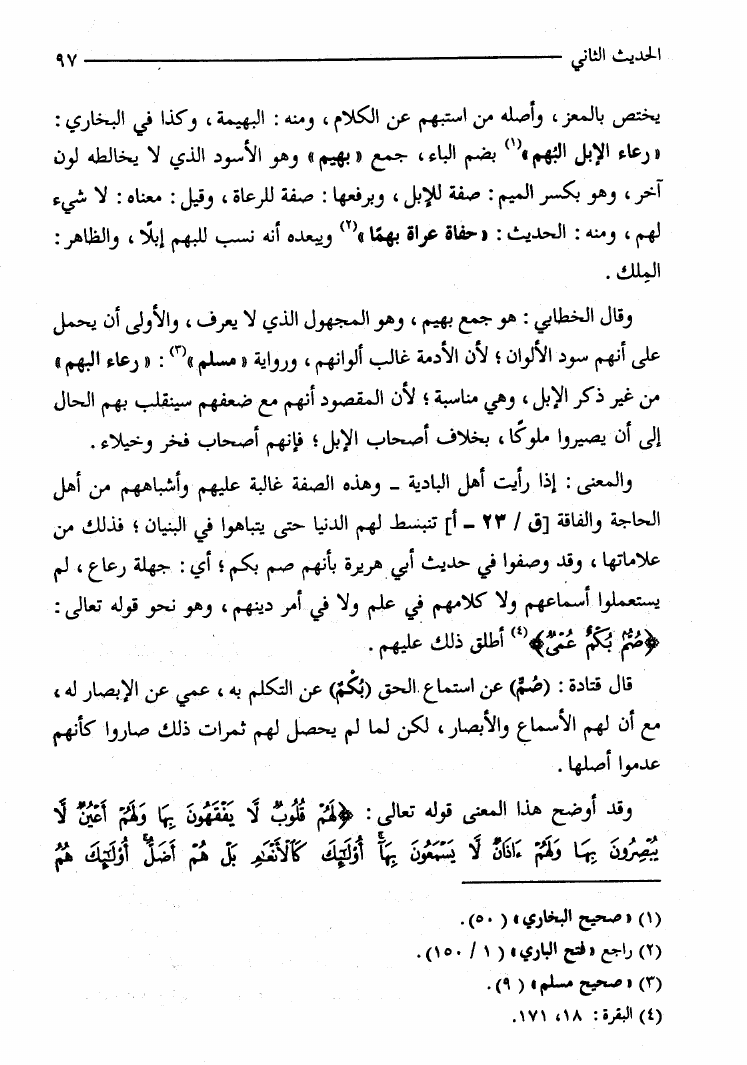 الحديث الثاني ٩٧
يختص بالمعز، وأصله من استبهم عن الكلام، ومنه: البهيمة، وكذا في البخاري:
«رعاء الإبل البُهم»(١) بضم الباء، جمع «بهيم» وهو الأسود الذي لا يخالطه لون
آخر، وهو بكسر الميم: صفة للإبل، وبرفعها: صفة للرعاة، وقيل: معناه: لا شيء
لهم، ومنه: الحديث: «حفاة عراة بهمًا»(٢) ويبعده أنه نسب للبهم إبلًا، والظاهر:
المِلك.
وقال الخطابي: هو جمع بهيم، وهو المجهول الذي لا يعرف، والأولى أن يحمل
على أنهم سود الألوان؛ لأن الأدمة غالب ألوانهم، ورواية «مسلم»(٣): «رعاء البهم»
من غير ذكر الإبل، وهي مناسبة؛ لأن المقصود أنهم مع ضعفهم سينقلب بهم الحال
إلى أن يصيروا ملوكًا، بخلاف أصحاب الإبل؛ فإنهم أصحاب فخر وخيلاء.
والمعنى: إذا رأيت أهل البادية ـ وهذه الصفة غالبة عليهم وأشباههم من أهل
الحاجة والفاقة [ق / ٢٣ ـ أ] تنبسط لهم الدنيا حتى يتباهوا في البنيان؛ فذلك من
علاماتها، وقد وصفوا في حديث أبي هريرة بأنهم صم بكم؛ أي: جهلة رعاع، لم
يستعملوا أسماعهم ولا كلامهم في علم ولا في أمر دينهم، وهو نحو قوله تعالى:
﴿صُمٌّ بُكْمٌ عُمْىٌ﴾(٤) أطلق ذلك عليهم.
قال قتادة: (صُمٌّ) عن استماع الحق (بُكْمٌ) عن التكلم به، عمي عن الإبصار له،
مع أن لهم الأسماع والأبصار، لكن لما لم يحصل لهم ثمرات ذلك صاروا كأنهم
عدموا أصلها.
وقد أوضح هذا المعنى قوله تعالى: ﴿لَهُمْ قُلُوبٌ لَّا يَفْقَهُونَ بِهَا وَلَهُمْ أَعْيُنٌ لَّا
يُبْصِرُونَ بِهَا وَلَهُمْ ءَاذَانٌ لَّا يَسْمَعُونَ بِهَآ أُوْلَٰٓئِكَ كَٱلْأَنْعَٰمِ بَلْ هُمْ أَضَلُّ أُوْلَٰٓئِكَ هُمُ
(١) «صحيح البخاري» (٥٠).
(٢) راجع «فتح الباري» (١ / ١٥٠).
(٣) «صحيح مسلم» (٩).
(٤) البقرة: ١٨، ١٧١.